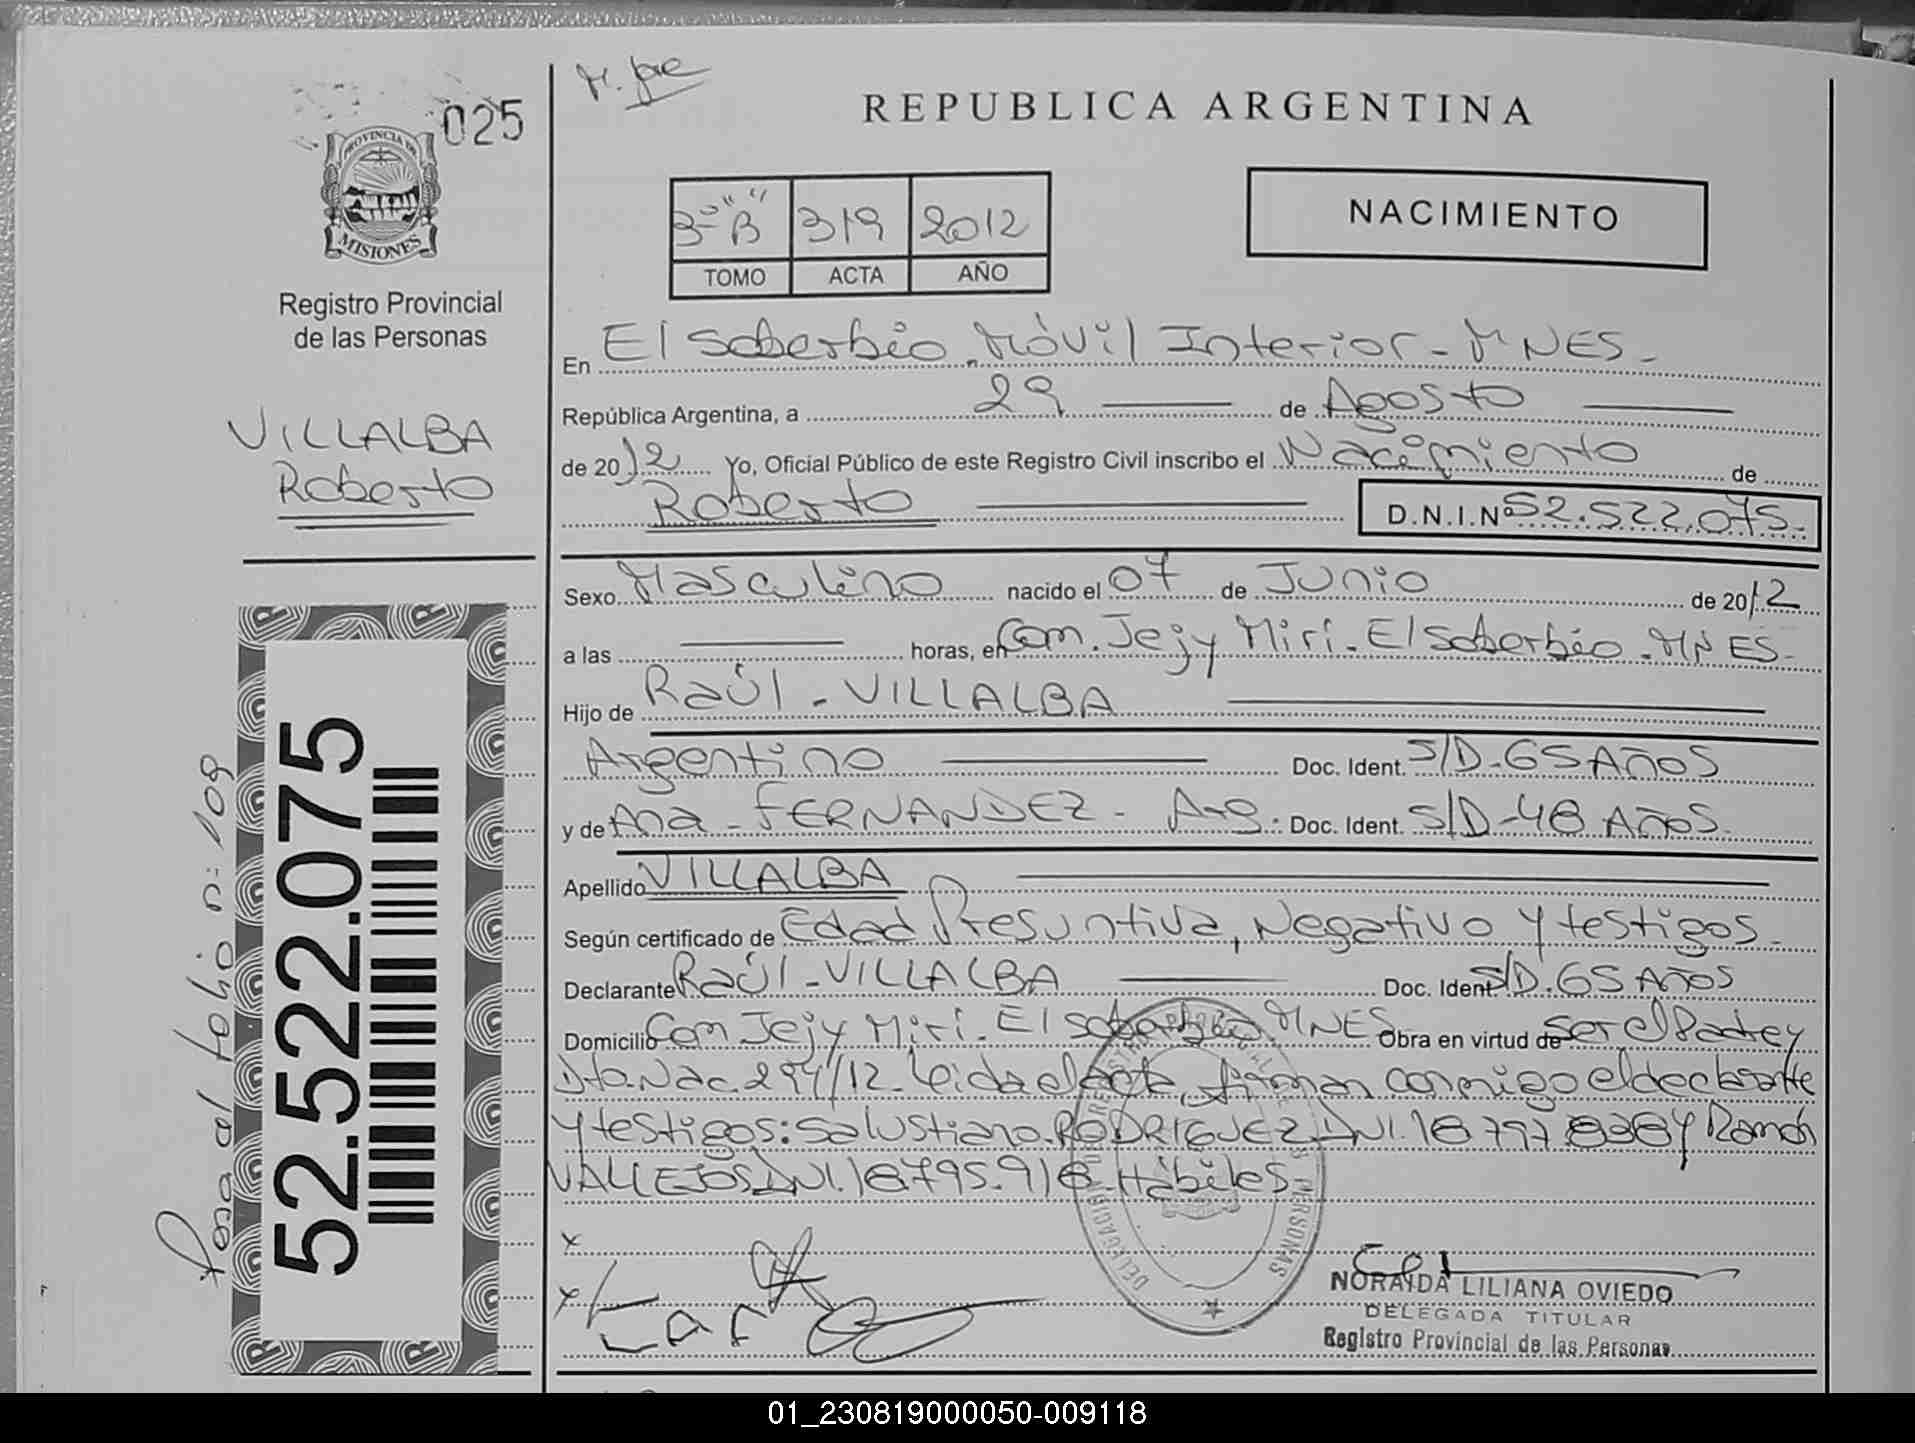 025
PROVINCIA DE
MISIONES
Registro Provincial
de las Personas
VILLALBA
Roberto
Pasa al folio nº 109
52.522.075
REPUBLICA ARGENTINA
3º "B" 319 2012
TOMO ACTA AÑO
NACIMIENTO
En El Soberbio. Móvil Interior - MNES -
República Argentina, a 29 de Agosto
de 2012 Yo, Oficial Público de este Registro Civil inscribo el Nacimiento de
Roberto D.N.I.Nº 52.522.075.
Sexo Masculino nacido el 07 de Junio de 2012
a las horas, en Com. Jejy Miri. El Soberbio. MNES.
Hijo de Raúl - VILLALBA
Argentino Doc. Ident. S/D - 65 Años
y de Ana - FERNANDEZ - Arg. Doc. Ident. S/D - 48 Años.
Apellido VILLALBA
Según certificado de Edad Presuntiva, Negativo y testigos.
Declarante Raúl - VILLALBA Doc. Ident. S/D. 65 Años
Domicilio Com Jejy Miri. El Soberbio MNES Obra en virtud de Ser el Padre y
Dto. Nac. 294/12. Leida el acta, firman conmigo el declarante
y testigos: Salustiano. RODRIGUEZ DNI. 18.797.838 y Ramón
VALLEJOS DNI. 18.795.918. Hábiles.
NORAIDA LILIANA OVIEDO
DELEGADA TITULAR
Registro Provincial de las Personas
01_230819000050-009118